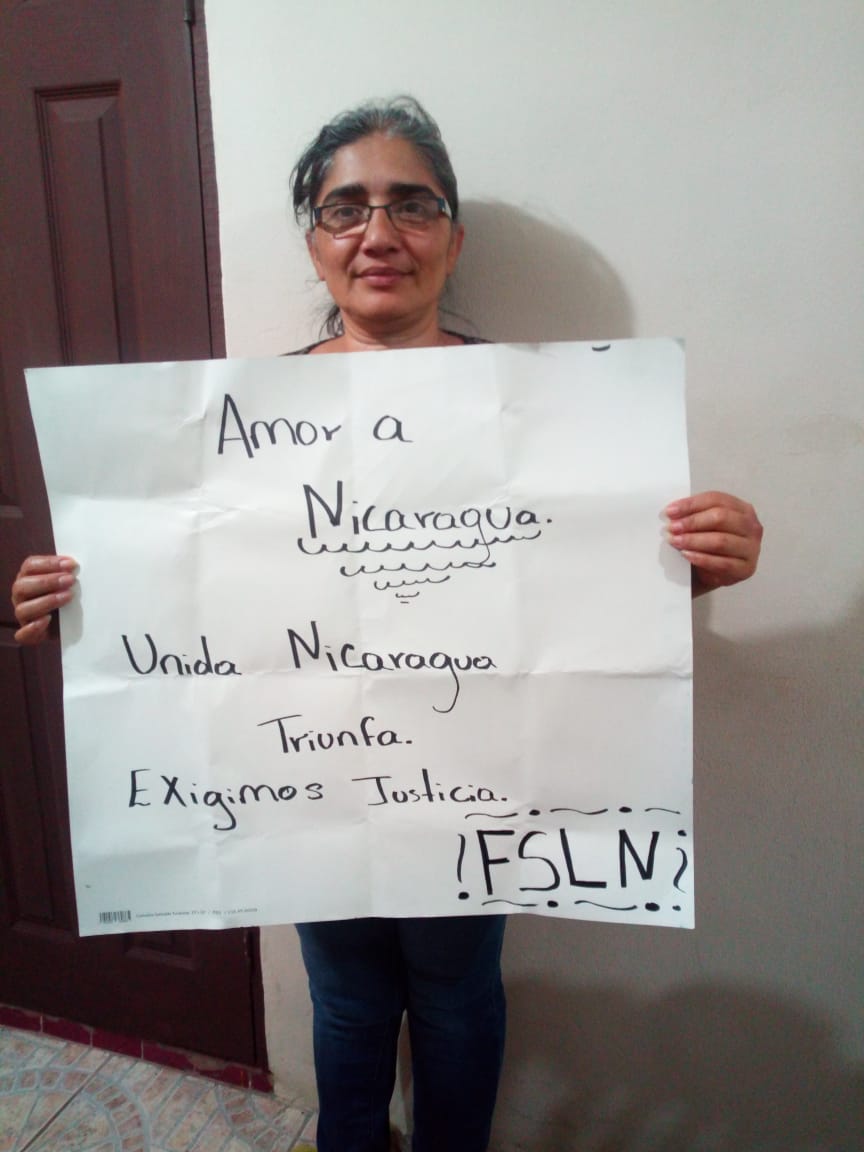 Amor a
Nicaragua.
Unida Nicaragua
Triunfa.
Exigimos Justicia.
¡FSLN!